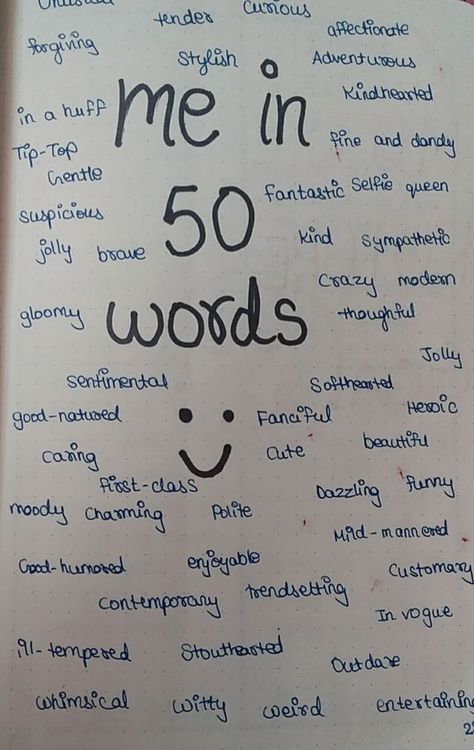 Unusual
tender Curious
forgiving affectionate
Stylish Adventurous
in a huff me in Kindhearted
Tip-Top fine and dandy
Gentle
suspicious 50 fantastic Selfie queen
jolly brave Kind Sympathetic
Crazy modern
gloomy words thoughtful
Jolly
Sentimental Softhearted
good-natured Fanciful Heroic
Caring Cute beautiful
first-class Dazzling funny
moody Charming Polite
Mild-mannered
Good-humored enjoyable Customary
Contemporary trendsetting
In vogue
ill-tempered Stouthearted
Outdare
whimsical witty weird entertaining